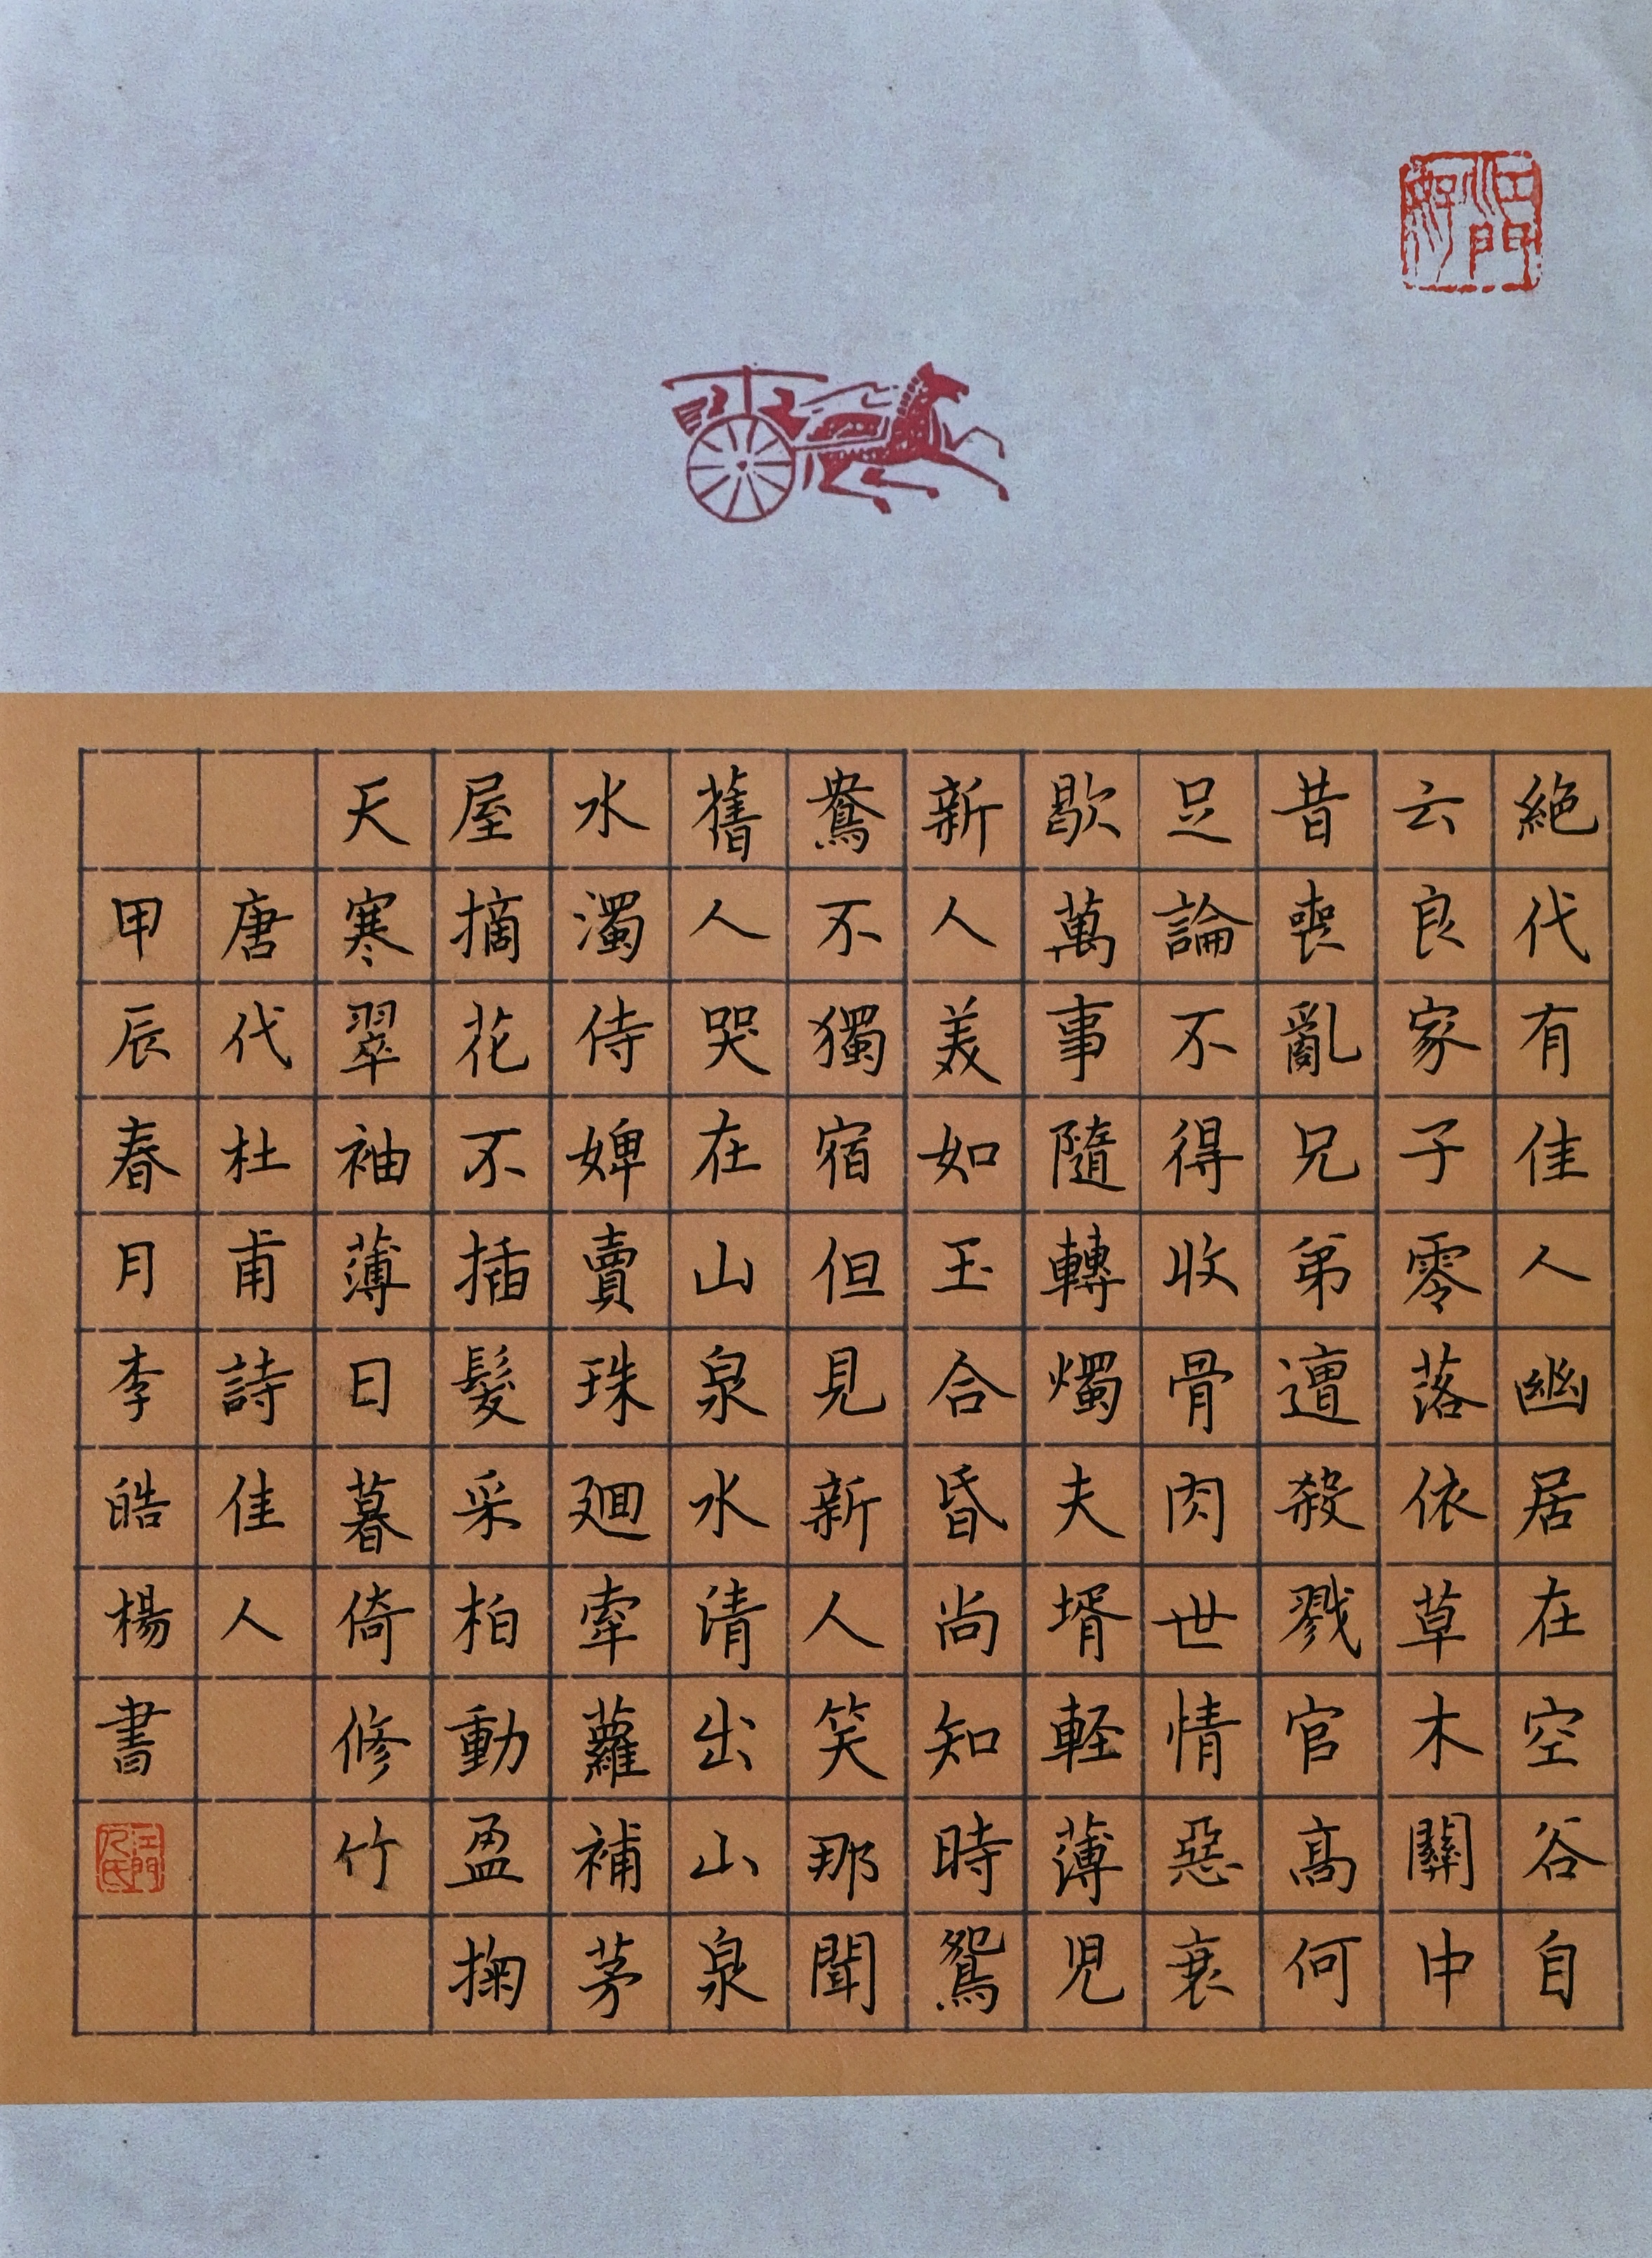 絶代有佳人幽居在空谷自
云良家子零落依草木關中
昔喪亂兄弟遭殺戮官高何
足論不得收骨肉世情惡衰
歇萬事隨轉燭夫壻輕薄児
新人美如玉合昏尚知時鴛
鴦不獨宿但見新人笑那聞
舊人哭在山泉水清出山泉
水濁侍婢賣珠廻牽蘿補茅
屋摘花不插髮采柏動盈掬
天寒翠袖薄日暮倚修竹
唐代杜甫詩佳人
甲辰春月李皓楊書